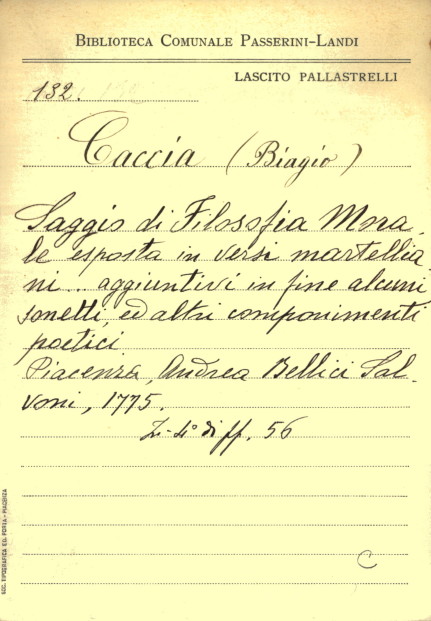 BIBLIOTECA COMUNALE PASSERINI-LANDI
LASCITO PALLASTRELLI
132.
Caccia (Biagio)
Saggio di Filosofia Mora
le esposta in versi martellia
ni... aggiuntivi in fine alcuni
sonetti, ed altri componimenti
poetici.
Piacenza, Andrea Bellici Sal-
voni, 1775.
In-4° di ff. 56
C
SOC. TIPOGRAFICA ED. PORTA - PIACENZA